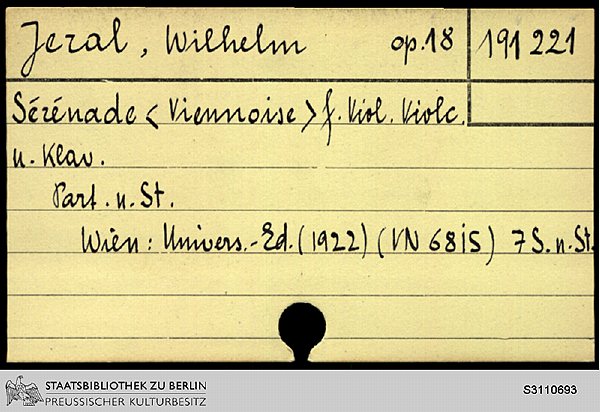 Jeral, Wilhelm op. 18 191 221
Sérénade < Viennoise > f. Viol. Violc.
u. Klav.
Part. u. St.
Wien: Univers.-Ed. (1922) (VN 6815) 7 S. u. St.
STAATSBIBLIOTHEK ZU BERLIN
PREUSSISCHER KULTURBESITZ
S3110693